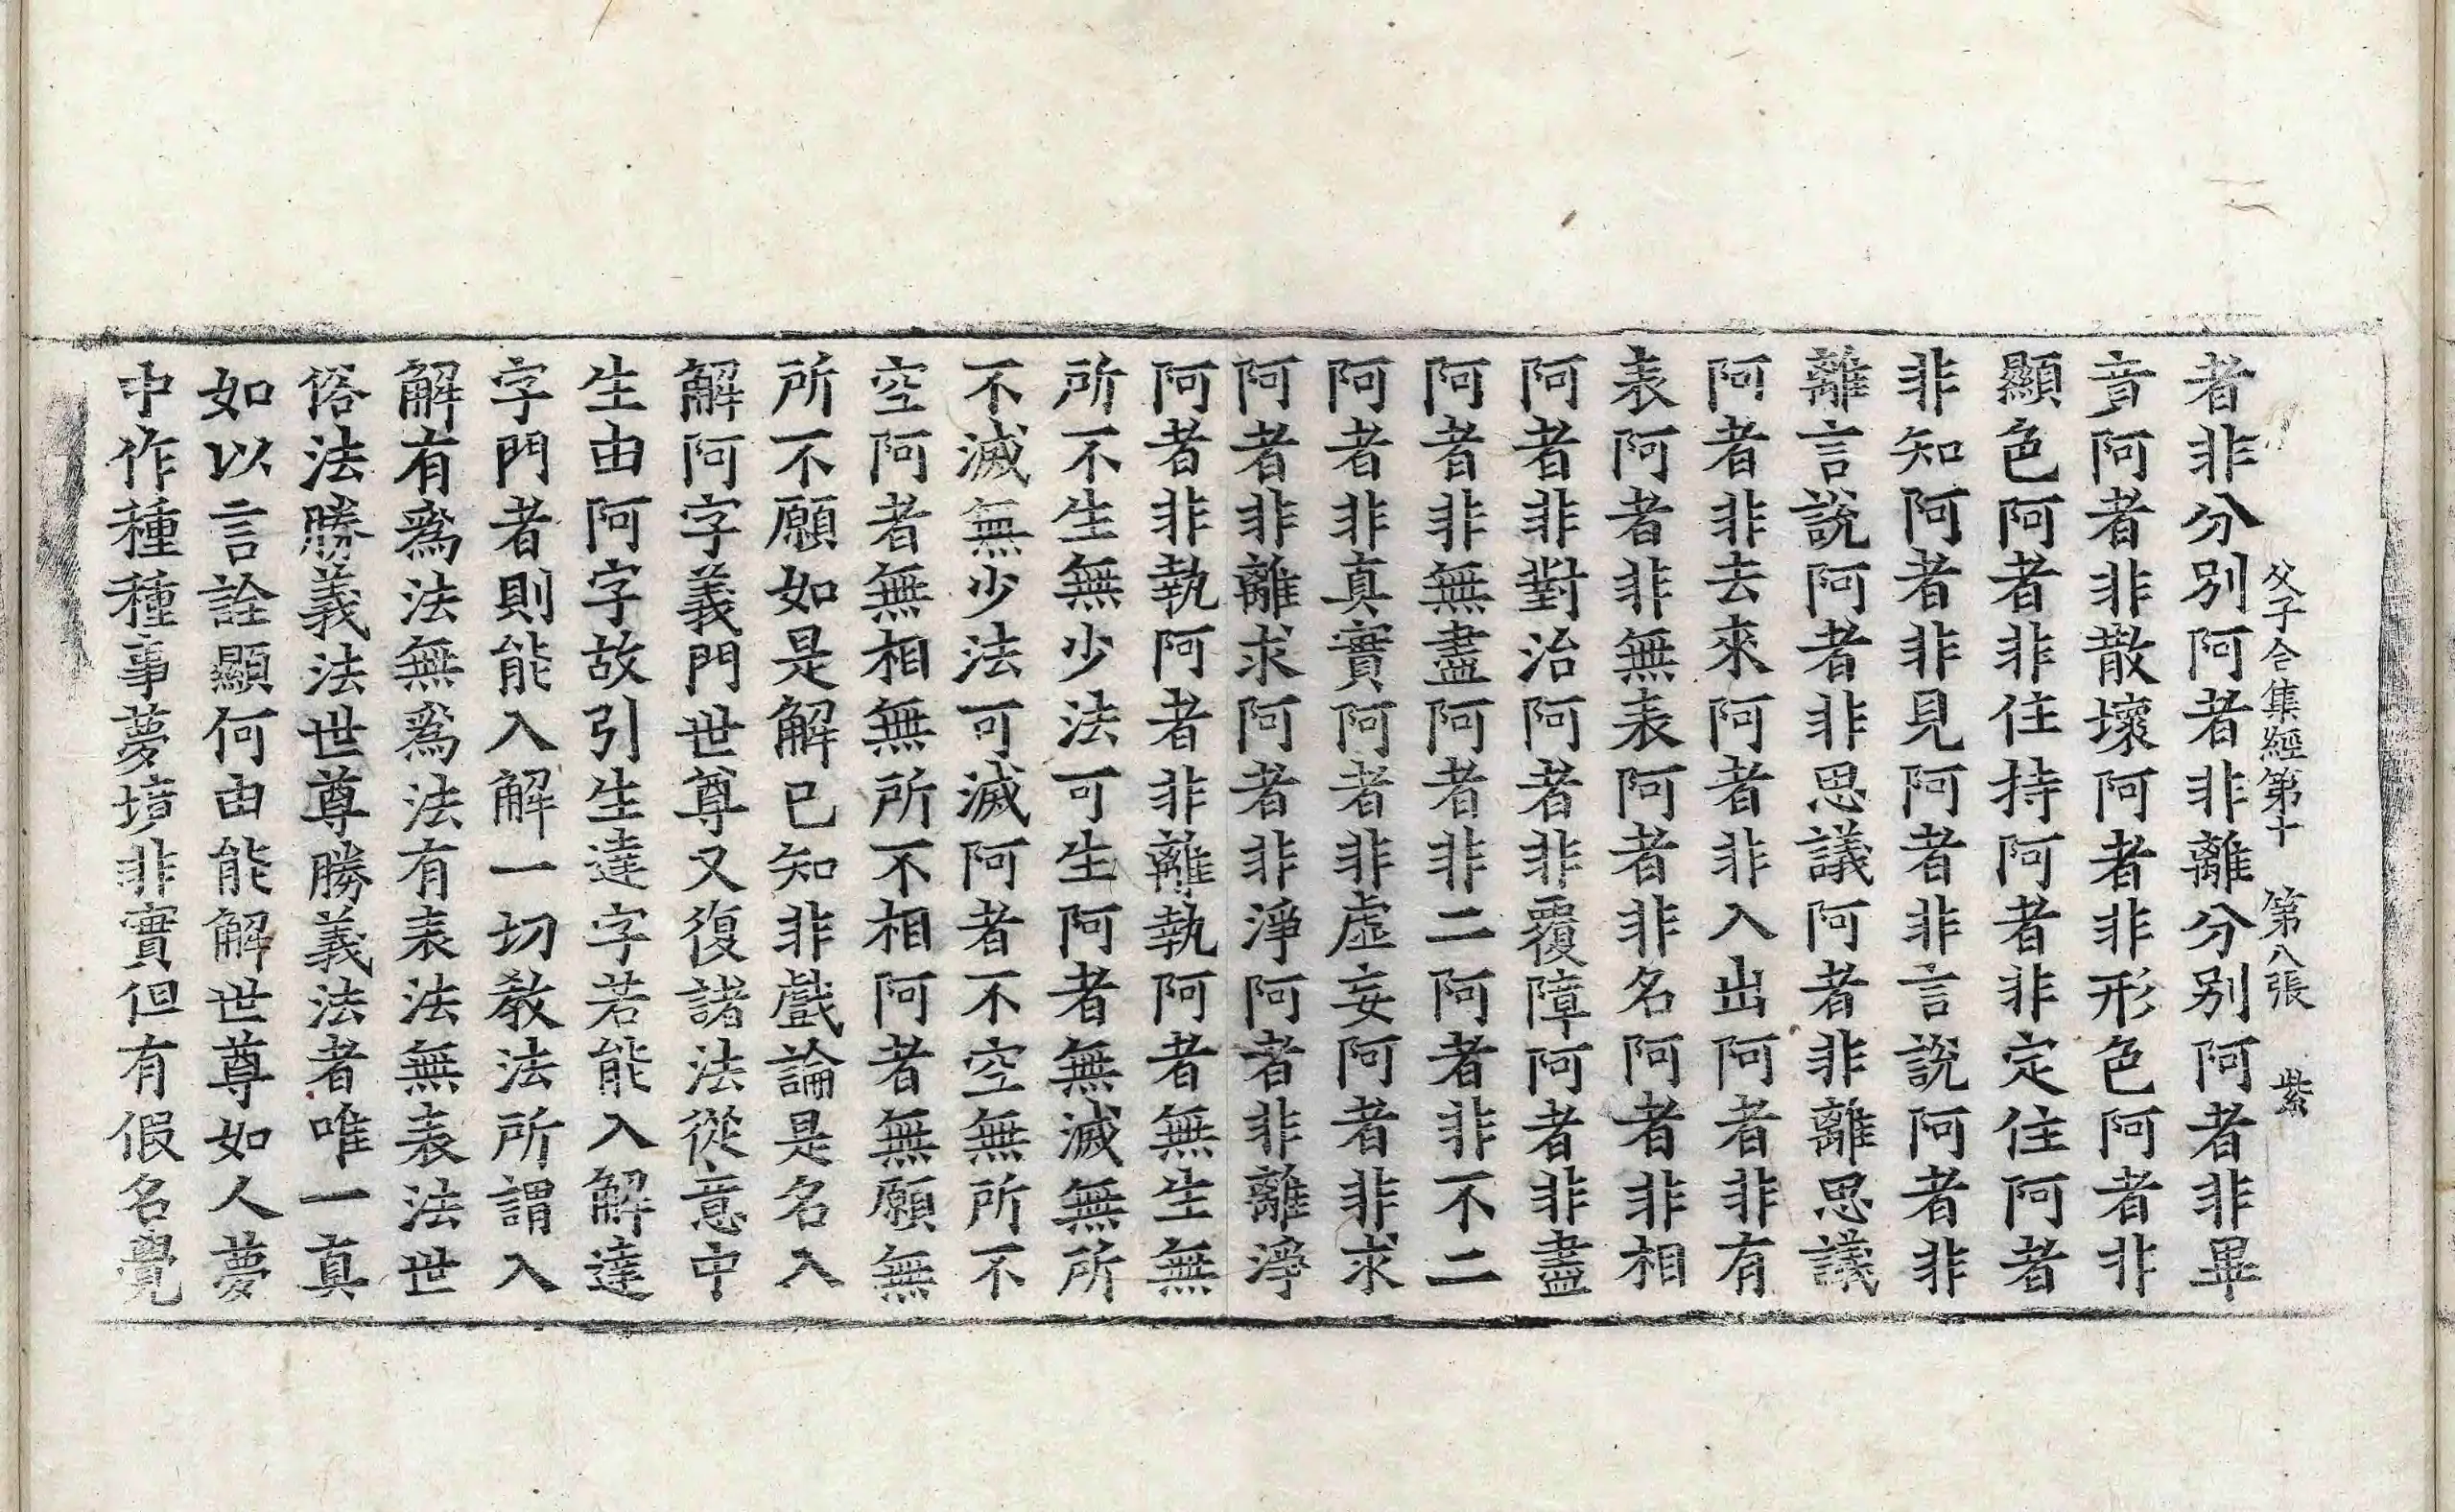 父子合集經第十　第八張　紫
者非分別阿者非離分別阿者非畢
音阿者非散壞阿者非形色阿者非
顯色阿者非住持阿者非定住阿者
非知阿者非見阿者非言說阿者非
離言說阿者非思議阿者非離思議
阿者非去來阿者非入出阿者非有
表阿者非無表阿者非名阿者非相
阿者非對治阿者非覆障阿者非盡
阿者非無盡阿者非二阿者非不二
阿者非真實阿者非虛妄阿者非求
阿者非離求阿者非淨阿者非離淨
阿者非執阿者非離執阿者無生無
所不生無少法可生阿者無滅無所
不滅無少法可滅阿者不空無所不
空阿者無相無所不相阿者無願無
所不願如是解已知非戲論是名入
解阿字義門世尊又復諸法從意中
生由阿字故引生達字若能入解達
字門者則能入解一切教法所謂入
解有爲法無爲法有表法無表法世
俗法勝義法世尊勝義法者唯一真
如以言詮顯何由能解世尊如人夢
中作種種事夢境非實但有假名覺